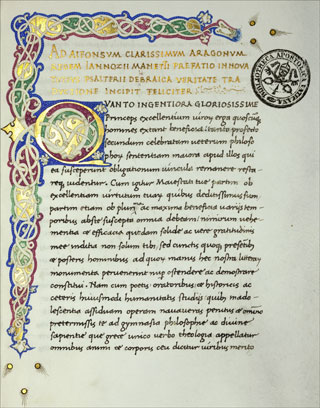 AD ALFONSVM CLARISSIMVM ARAGONVM
REGEM IANNOZII MANETTI PREFATIO IN NOVA
PSALTERII DEBRAICA VERITATE TRA
INCIPIT FELICITER
QVANTO INGENTIORA GLORIOSISSIME
Princeps excellentium uiroꝝ erga quoscūqꝫ
homines extant beneficia
secundum celebratam ueterum philoso
phoꝝ sententiam maiora apud illos qui
ea susceperunt obligationum uincula remanere
uidentur. Cum igitur Maiestati tue partim ob
excellentiam uirtutum tuarum quibus deditissimus
partim etiam ob plurima ac maxima beneficia uariis tem
poribus abs te suscepta omnia debeam nimirum uehe
mentia et efficacia quedam solide ac uere gratitudinis
mee indita non solum tibi sed cunctis quoqꝫ presentibus
et posteris hominibus ad quoꝝ manus hec nostra
monumenta peruenerint ostendere ac demonstrare
constitui. Nam cum poetis oratoribus et historicis ac
ceteris huiusmodi humanitatis studiis quibus in ado
lescentia assiduam operam nauaueram penitus et omnino
pretermissis te ad gymnasia philosophie ac diuine
sapientie que grece unico uerbo theologia appellatur
omnibus animi et corporis ceu dicitur uiribus